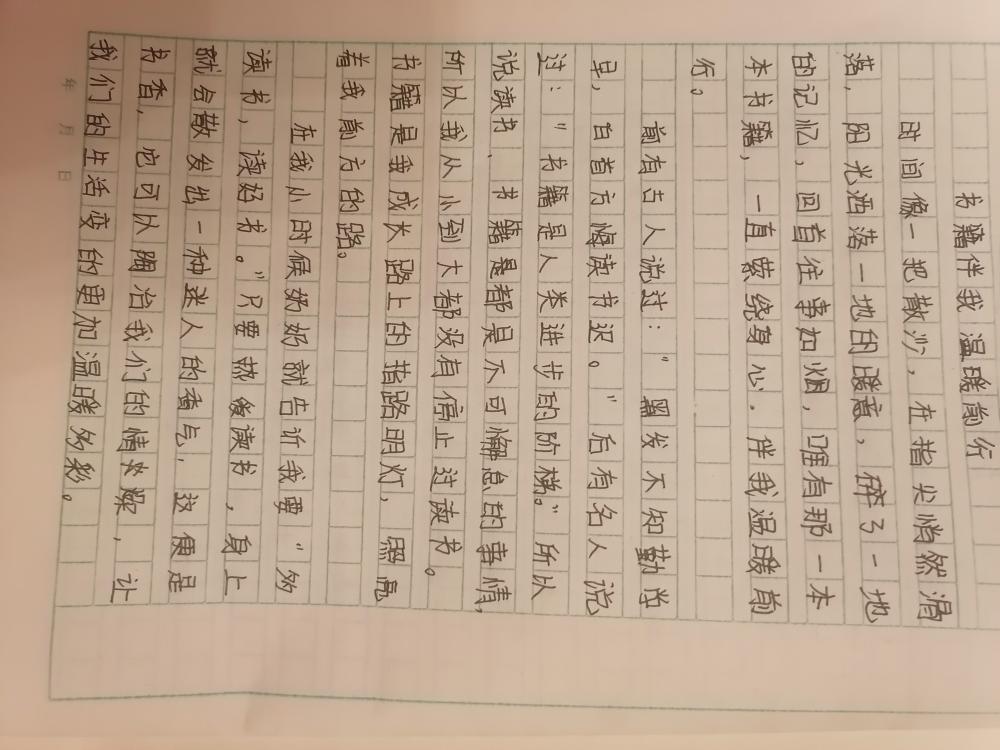 书籍伴我温暖前行
时间像一把散沙，在指尖悄然滑
落，阳光洒落一地的暖意，碎了一地
的记忆，回首往事如烟，唯有那一本
本书籍，一直萦绕身心，伴我温暖前
行。
前有古人说过：“黑发不知勤学
早，白首方悔读书迟。”后有名人说
过：“书籍是人类进步的阶梯。”所以
说读书、书籍是都是不可懈怠的事情，
所以我从小到大都没有停止过读书。
书籍是我成长路上的指路明灯，照亮
着我前方的路。
在我小时候奶奶就告诉我要“多
读书，读好书。”只要热爱读书，身上
就会散发出一种迷人的香气，这便是
书香，它可以陶冶我们的情操，让
我们的生活变的更加温暖多彩。
年 月 日